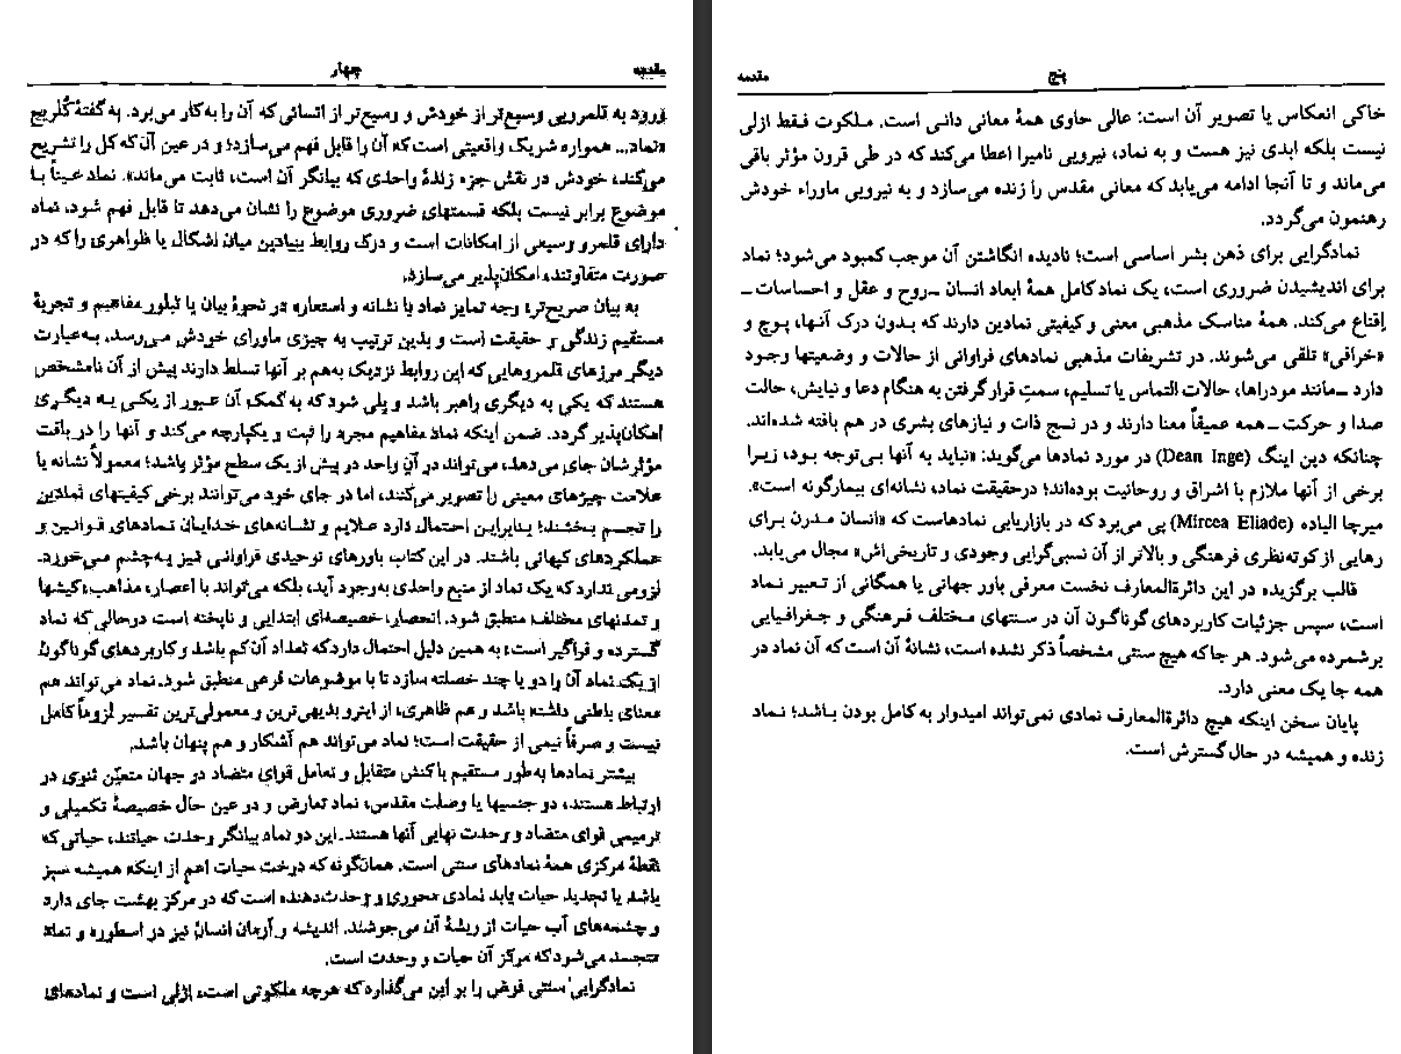 مقدمه
چهار
ورود به قلمرویی وسیع‌تر از خودش و وسیع‌تر از انسانی که آن را به‌کار می‌برد. به گفتهٔ کُلریج
«نماد... همواره شریک واقعیتی است که آن را قابل فهم می‌سازد؛ و در عین آن‌که کل را تشریح
می‌کند، خودش در نقش جزء زندهٔ واحدی که بیانگر آن است، ثابت می‌ماند». نماد عیناً با
موضوع برابر نیست بلکه قسمتهای ضروری موضوع را نشان می‌دهد تا قابل فهم شود. نماد
دارای قلمرو وسیعی از امکانات است و درک روابط بنیادین میان اشکال یا ظواهری را که در
صورت متفاوتند، امکان‌پذیر می‌سازد.
به بیان صریح‌تر، وجه تمایز نماد با نشانه و استعاره در نحوهٔ بیان یا تبلور مفاهیم و تجربهٔ
مستقیم زندگی و حقیقت است و بدین ترتیب به چیزی ماورای خودش می‌رسد. به‌عبارت
دیگر مرزهای قلمروهایی که این روابط نزدیک به‌هم بر آنها تسلط دارند بیش از آن نامشخص
هستند که یکی به دیگری راهبر باشد و پلی شود که به کمک آن عبور از یکی به دیگری
امکان‌پذیر گردد. ضمن اینکه نماد مفاهیم مجرد را ثبت و یکپارچه می‌کند و آنها را در بافت
مؤثرشان جای می‌دهد، می‌تواند در آنِ واحد در بیش از یک سطح مؤثر باشد؛ معمولاً نشانه یا
علامت چیزهای معینی را تصویر می‌کنند، اما در جای خود می‌توانند برخی کیفیتهای نمادین
را تجسم بخشند؛ بنابراین احتمال دارد علایم و نشانه‌های خدایان نمادهای قوانین و
عملکردهای کیهانی باشند. در این کتاب باورهای توحیدی فراوانی نیز به‌چشم می‌خورد.
لزومی ندارد که یک نماد از منبع واحدی به‌وجود آید، بلکه می‌تواند با اعصار، مذاهب، کیشها
و تمدنهای مختلف منطبق شود. انحصار، خصیصه‌ای ابتدایی و ناپخته است درحالی که نماد
گسترده و فراگیر است، به همین دلیل احتمال دارد که تعداد آن کم باشد و کاربردهای گوناگون
از یک نماد آن را دو یا چند خصلته سازد تا با موضوعات فرعی منطبق شود. نماد می‌تواند هم
معنای باطنی داشته باشد و هم ظاهری، از اینرو بدیهی‌ترین و معمولی‌ترین تفسیر لزوماً کامل
نیست و صرفاً نیمی از حقیقت است؛ نماد می‌تواند هم آشکار و هم پنهان باشد.
بیشتر نمادها به‌طور مستقیم با کنش متقابل و تعامل قوای متضاد در جهان متعیّن ثنوی در
ارتباط هستند، دو جنسیها یا وصلت مقدس، نماد تعارض و در عین حال خصیصهٔ تکمیلی و
ترمیمی قوای متضاد و وحدت نهایی آنها هستند. این دو نماد بیانگر وحدت حیاتند، حیاتی که
نقطهٔ مرکزی همهٔ نمادهای سنتی است. همان‌گونه که درخت حیات اعم از اینکه همیشه سبز
باشد یا تجدید حیات یابد نمادی محوری و وحدت‌دهنده است که در مرکز بهشت جای دارد
و چشمه‌های آب حیات از ریشهٔ آن می‌جوشند. اندیشه و آرمان انسان نیز در اسطوره و نماد
متجسد می‌شود که مرکز آن حیات و وحدت است.
نمادگرایی سنتی فرض را بر این می‌گذارد که هرچه ملکوتی است، ازلی است و نمادهای
مقدمه
پنج
خاکی انعکاس یا تصویر آن است: عالی حاوی همهٔ معانی دانی است. ملکوت فقط ازلی
نیست بلکه ابدی نیز هست و به نماد، نیرویی نامیرا اعطا می‌کند که در طی قرون مؤثر باقی
می‌ماند و تا آنجا ادامه می‌یابد که معانی مقدس را زنده می‌سازد و به نیرویی ماوراء خودش
رهنمون می‌گردد.
نمادگرایی برای ذهن بشر اساسی است؛ نادیده انگاشتن آن موجب کمبود می‌شود؛ نماد
برای اندیشیدن ضروری است، یک نماد کامل همهٔ ابعاد انسان ـ روح و عقل و احساسات ـ
إقناع می‌کند. همهٔ مناسک مذهبی معنی و کیفیتی نمادین دارند که بدون درک آنها، پوچ و
«خرافی» تلقی می‌شوند. در تشریفات مذهبی نمادهای فراوانی از حالات و وضعیتها وجود
دارد ـ مانند مودراها، حالات التماس یا تسلیم، سمتِ قرار گرفتن به هنگام دعا و نیایش، حالت
صدا و حرکت ـ همه عمیقاً معنا دارند و در نسج ذات و نیازهای بشری در هم بافته شده‌اند.
چنانکه دین اینگ (Dean Inge) در مورد نمادها می‌گوید: «نباید به آنها بی‌توجه بود، زیرا
برخی از آنها ملازم با اشراق و روحانیت بوده‌اند؛ درحقیقت نماد، نشانه‌ای بیمارگونه است».
میرچا الیاده (Mircea Eliade) پی می‌برد که در بازاریابی نمادهاست که «انسان مدرن برای
رهایی از کوته‌نظری فرهنگی و بالاتر از آن نسبی‌گرایی وجودی و تاریخی‌اش» مجال می‌یابد.
قالب برگزیده در این دائرةالمعارف نخست معرفی باور جهانی یا همگانی از تعبیر نماد
است، سپس جزئیات کاربردهای گوناگون آن در سنتهای مختلف فرهنگی و جغرافیایی
برشمرده می‌شود. هر جا که هیچ سنتی مشخصاً ذکر نشده است، نشانهٔ آن است که آن نماد در
همه جا یک معنی دارد.
پایان سخن اینکه هیچ دائرةالمعارف نمادی نمی‌تواند امیدوار به کامل بودن باشد؛ نماد
زنده و همیشه در حال گسترش است.